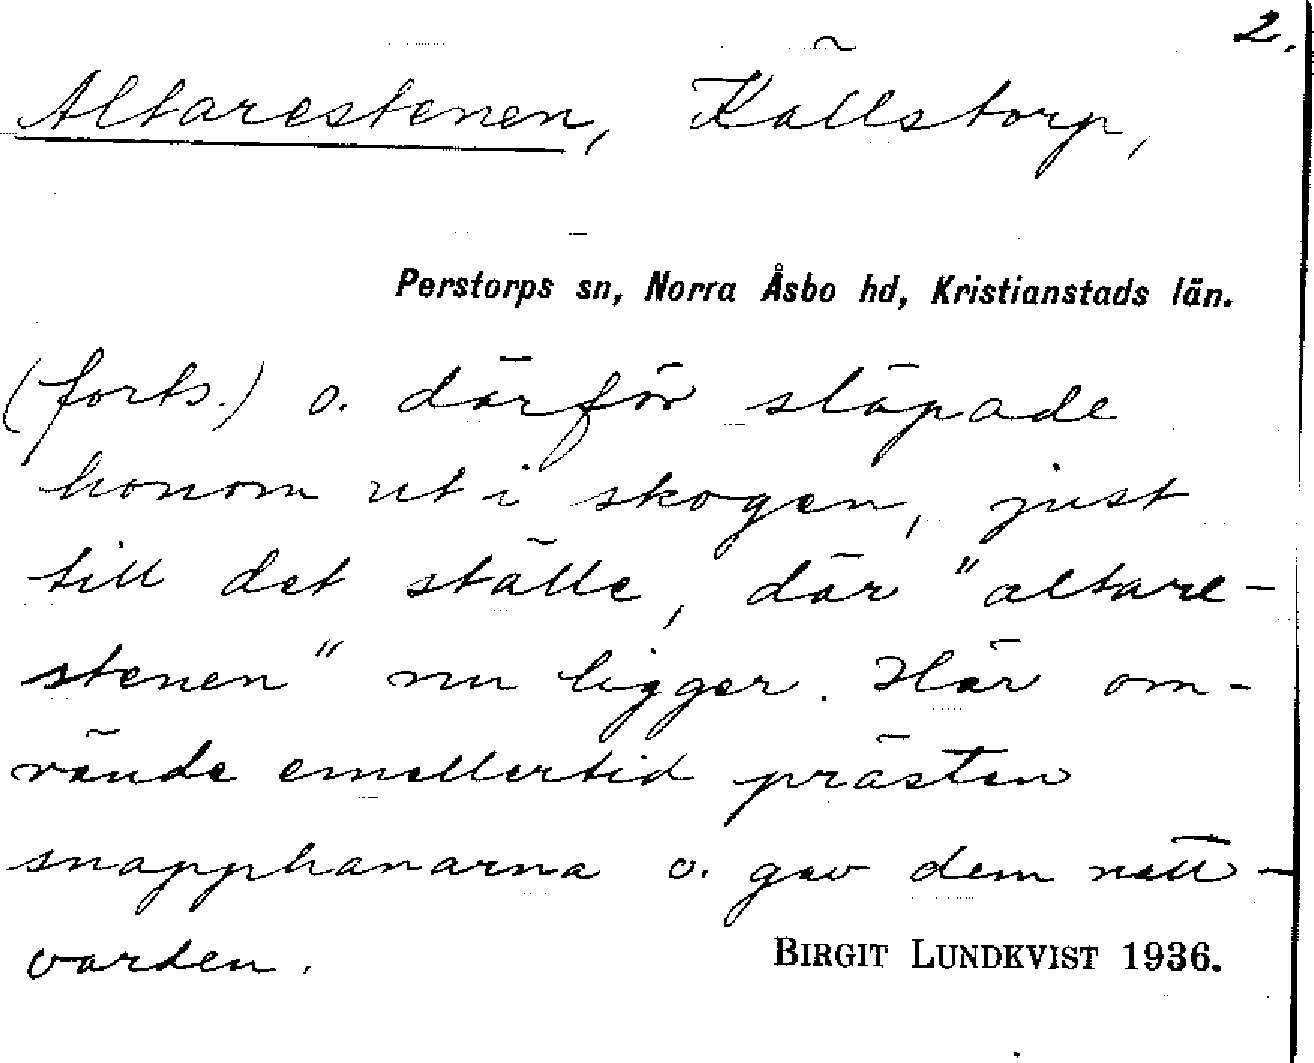 2.
Altarestenen, Källstorp,
Perstorps sn, Norra Åsbo hd, Kristianstads län.
(forts.) o. därför släpade
honom ut i skogen, just
till det ställe, där "altare-
stenen" nu ligger. Här om-
vände emellertid prästen
snapphanarna o. gav dem natt-
varden.
BIRGIT LUNDKVIST 1936.